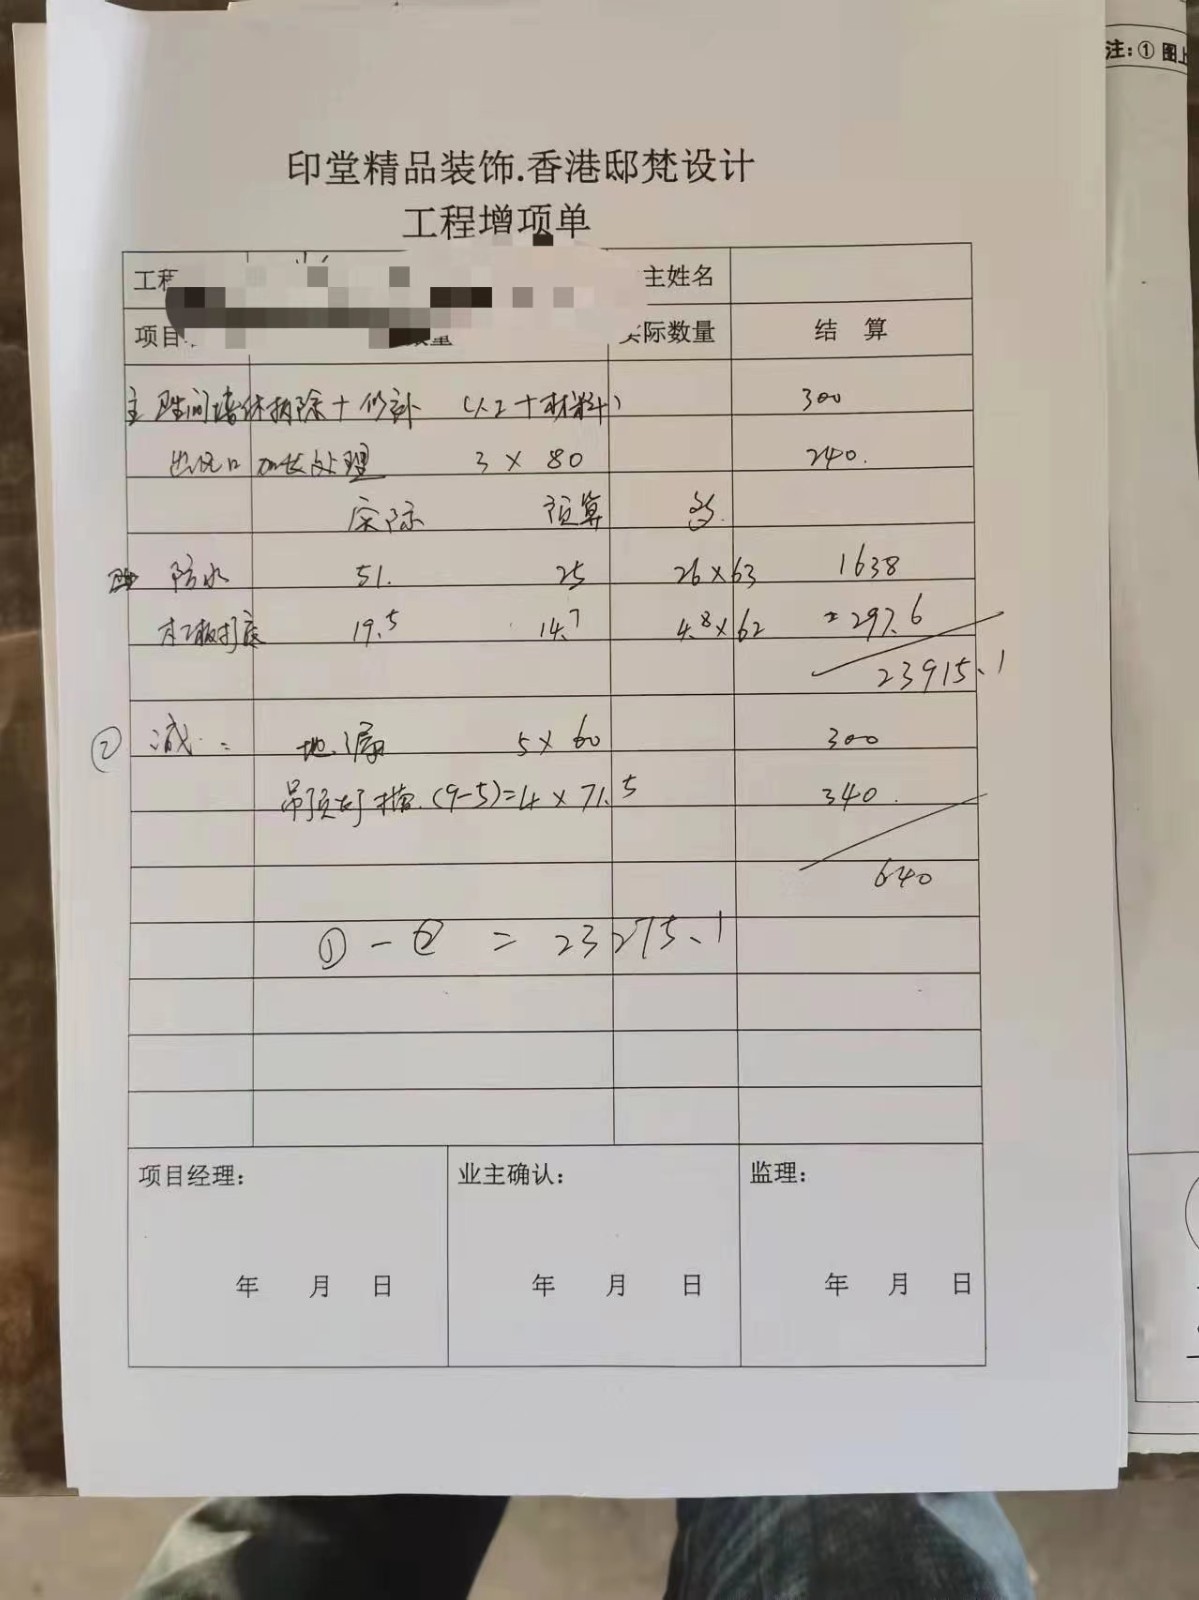 注:① 图上
印堂精品装饰.香港邸梵设计
工程增项单
工程 主姓名
项目 数量 实际数量 结 算
主卫生间墙体拆除+修补 (人工+材料) 300
出风口加长处理 3×80 240.
实际 预算 多
防水 51. 25 26×63 1638
木工板打底 19.5 14.7 4.8×62 =297.6
23915.1
② 减: 地漏 5×60 300
吊顶 (9-5)=4×71.5 340.
640
①-② = 23275.1
项目经理: 业主确认: 监理:
年 月 日 年 月 日 年 月 日